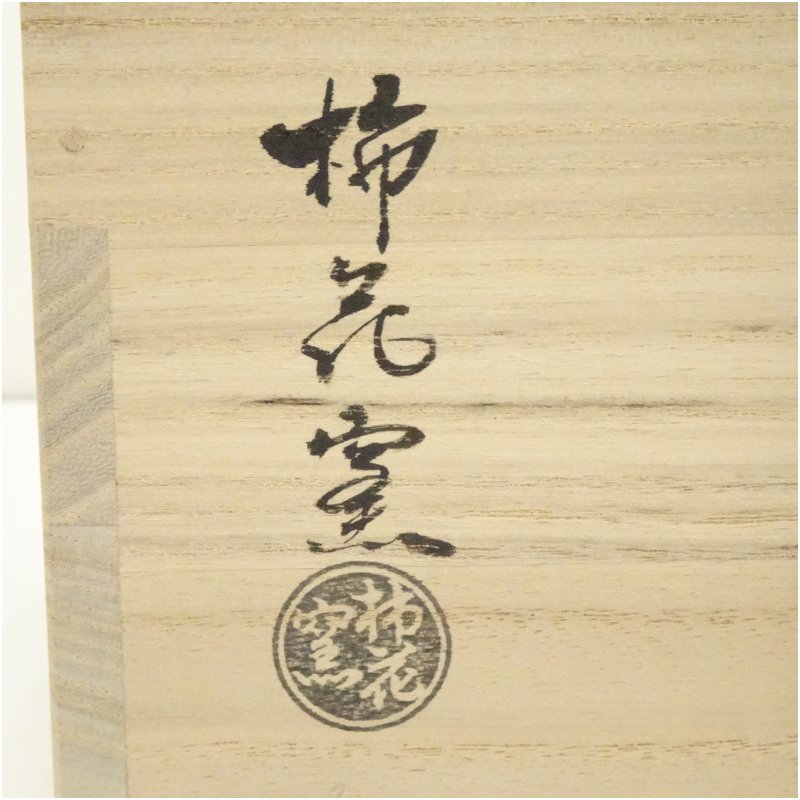 柿花窯
柿花窯